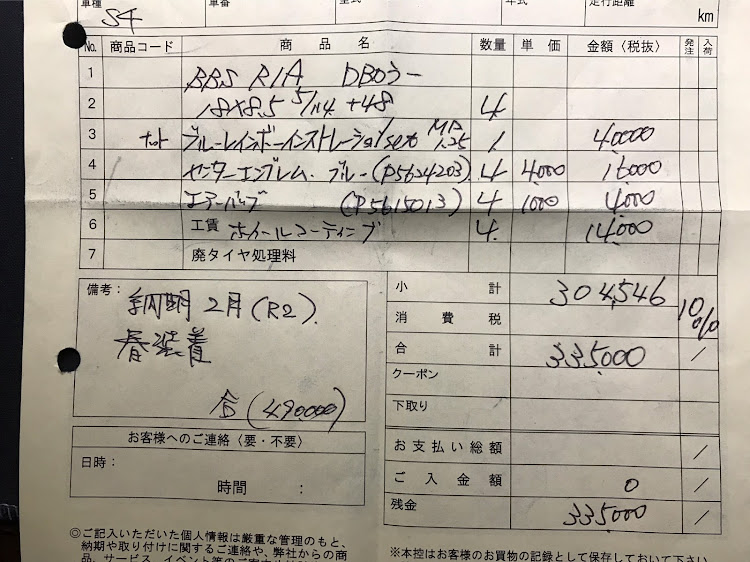 車種 車番 型式 年式 走行距離
S4 km
No. 商品コード 商品名 数量 単価 金額(税抜) 発注 入荷
1 BBS RIA DBカラー
2 18×8.5 5/114 +48 4
3 ナット ブルーレインボーインストレーション/set 1 40000
4 センターエンブレム ブルー(P5624203) 4 4000 16000
5 エアーバルブ (P5615013) 4 1000 4000
6 工賃 ホイールコーティング 4 14000
7 廃タイヤ処理料
備考: 納期 2月(R2).
春装着
合(490000)
お客様へのご連絡〈要・不要〉
日時:
時間 :
小計 304,546
消費税 10%
合計 335000 /
クーポン
下取り
お支払い総額 /
ご入金額 0 /
残金 335000 /
◎ご記入いただいた個人情報は厳重な管理のもと、
納期や取り付けに関するご連絡や、弊社からの商
品、サービス、イベント等の
※本控はお客様のお買物の記録として保存しておいて下さい